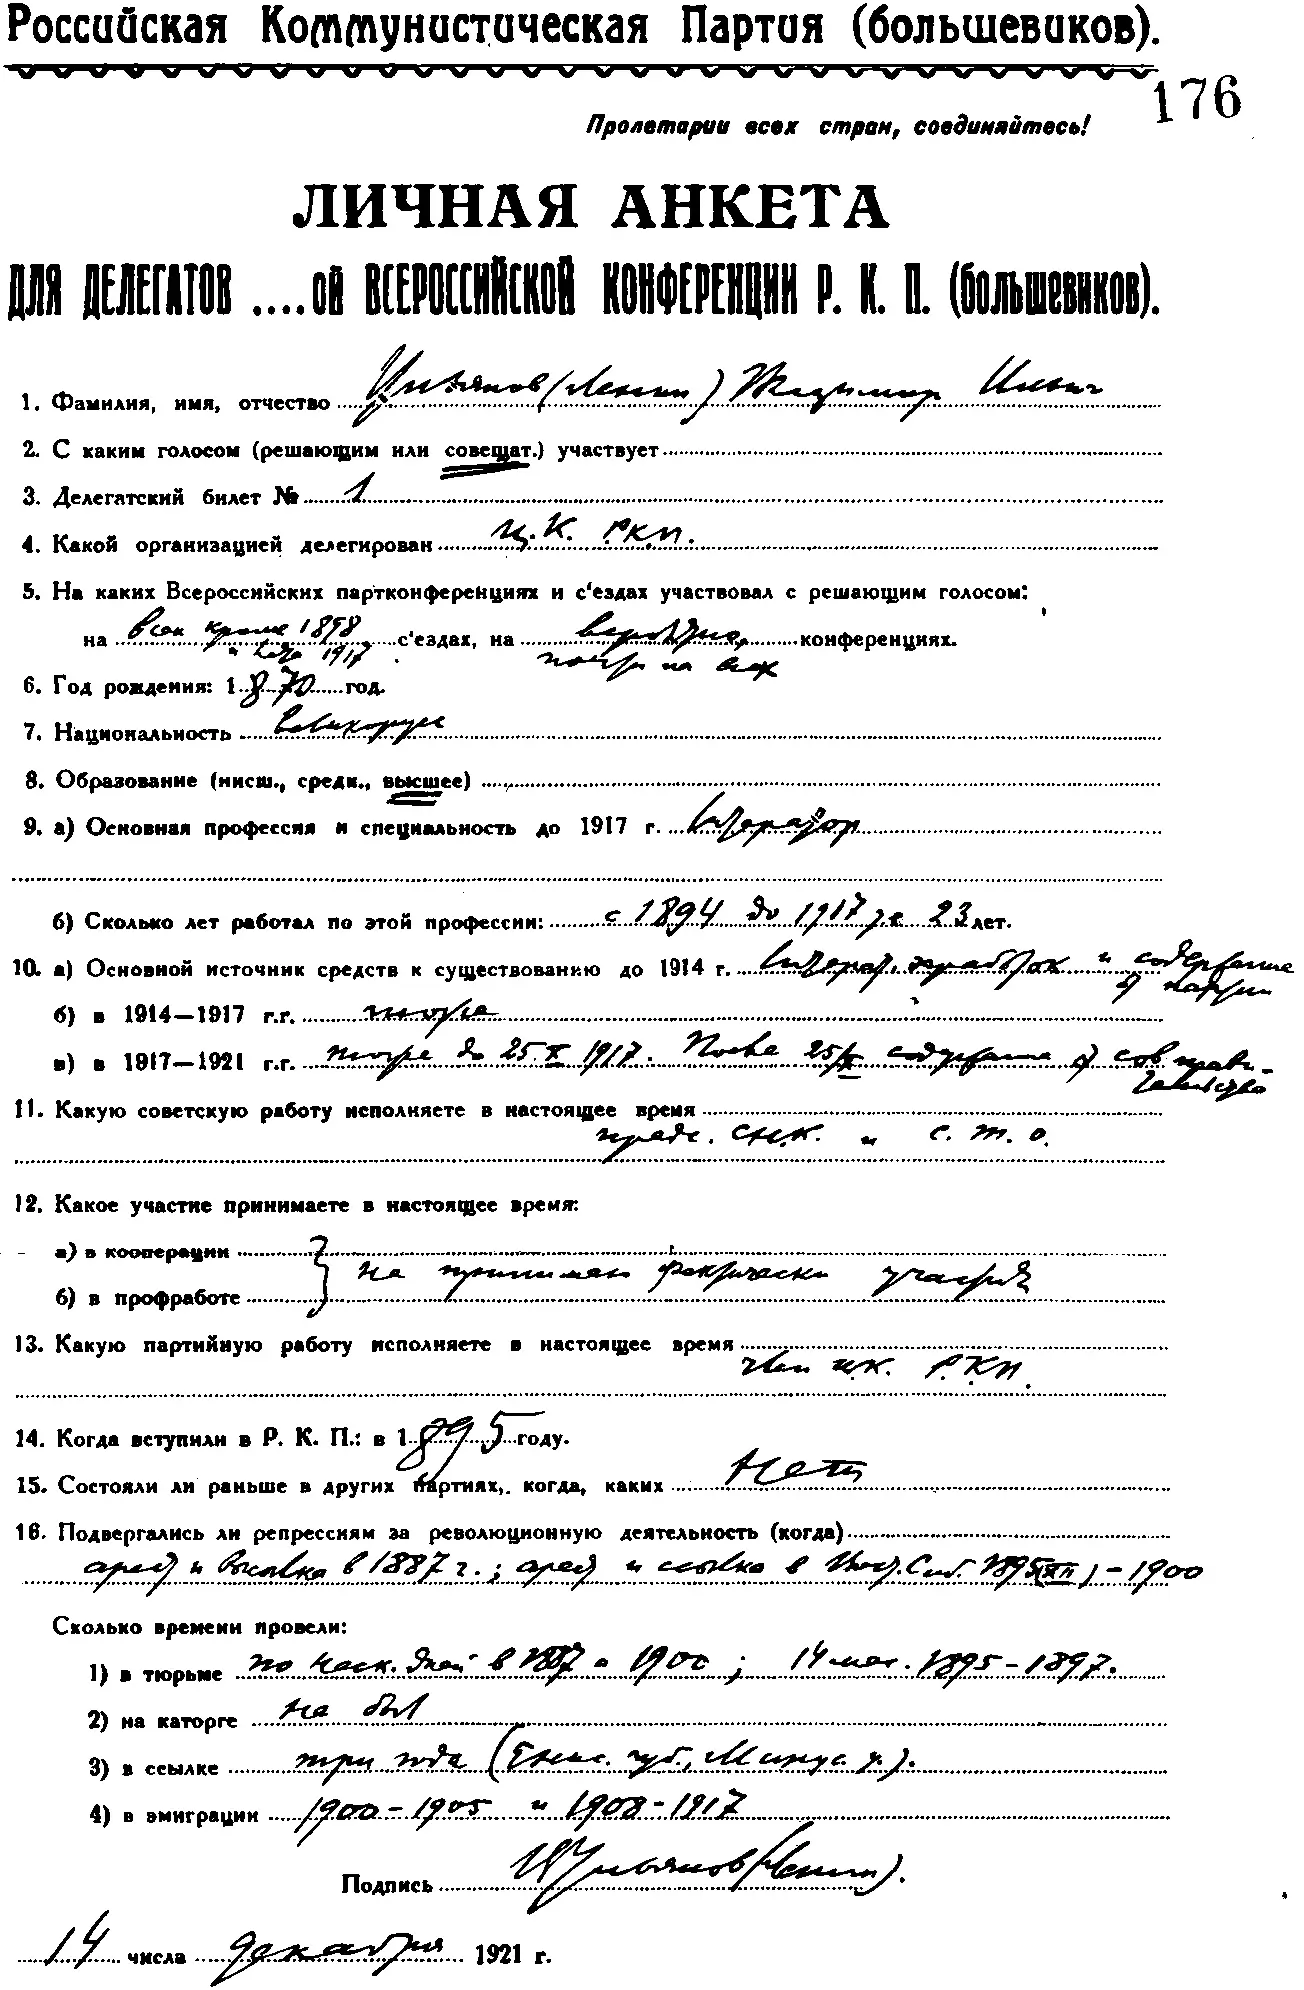 Российская Коммунистическая Партия (большевиков).
176
Пролетарии всех стран, соединяйтесь!
ЛИЧНАЯ АНКЕТА
ДЛЯ ДЕЛЕГАТОВ ....ой ВСЕРОССИЙСКОЙ КОНФЕРЕНЦИИ Р. К. П. (большевиков).
1. Фамилия, имя, отчество Ульянов (Ленин) Владимир Ильич
2. С каким голосом (решающим или совещат.) участвует
3. Делегатский билет № 1
4. Какой организацией делегирован Ц.К. Р.К.П.
5. На каких Всероссийских партконференциях и с'ездах участвовал с решающим голосом:
на всех кроме 1898 с'ездах, на вероятно, конференциях.
и лета 1917 почти на всех
6. Год рождения: 1870 год.
7. Национальность великорусс
8. Образование (нисш., средн., высшее)
9. а) Основная профессия и специальность до 1917 г. литератор
б) Сколько лет работал по этой профессии: с 1894 до 1917, т.е. 23 лет.
10. а) Основной источник средств к существованию до 1914 г. литерат. заработок и содержание
от партии
б) в 1914—1917 г.г. тоже
в) в 1917—1921 г.г. тоже до 25.X 1917. После 25/X содержание от сов. прави-
тельства
11. Какую советскую работу исполняете в настоящее время
предс. СНК. и С.Т.О.
12. Какое участие принимаете в настоящее время:
а) в кооперации
не принимаю фактически участия
б) в профработе
13. Какую партийную работу исполняете в настоящее время
член ЦК. Р.К.П.
14. Когда вступили в Р. К. П.: в 1895 году.
15. Состояли ли раньше в других партиях, когда, каких Нет
16. Подвергались ли репрессиям за революционную деятельность (когда)
арест и высылка в 1887 г.; арест и ссылка в Вост. Сиб. 1895(XII) - 1900
Сколько времени провели:
1) в тюрьме по неск. дней в 1887 и 1900; 14 мес. 1895-1897.
2) на каторге не был
3) в ссылке три года (Енис. губ., Минус. у.).
4) в эмиграции 1900-1905 и 1908-1917
Подпись В Ульянов (Ленин).
14 числа декабря 1921 г.